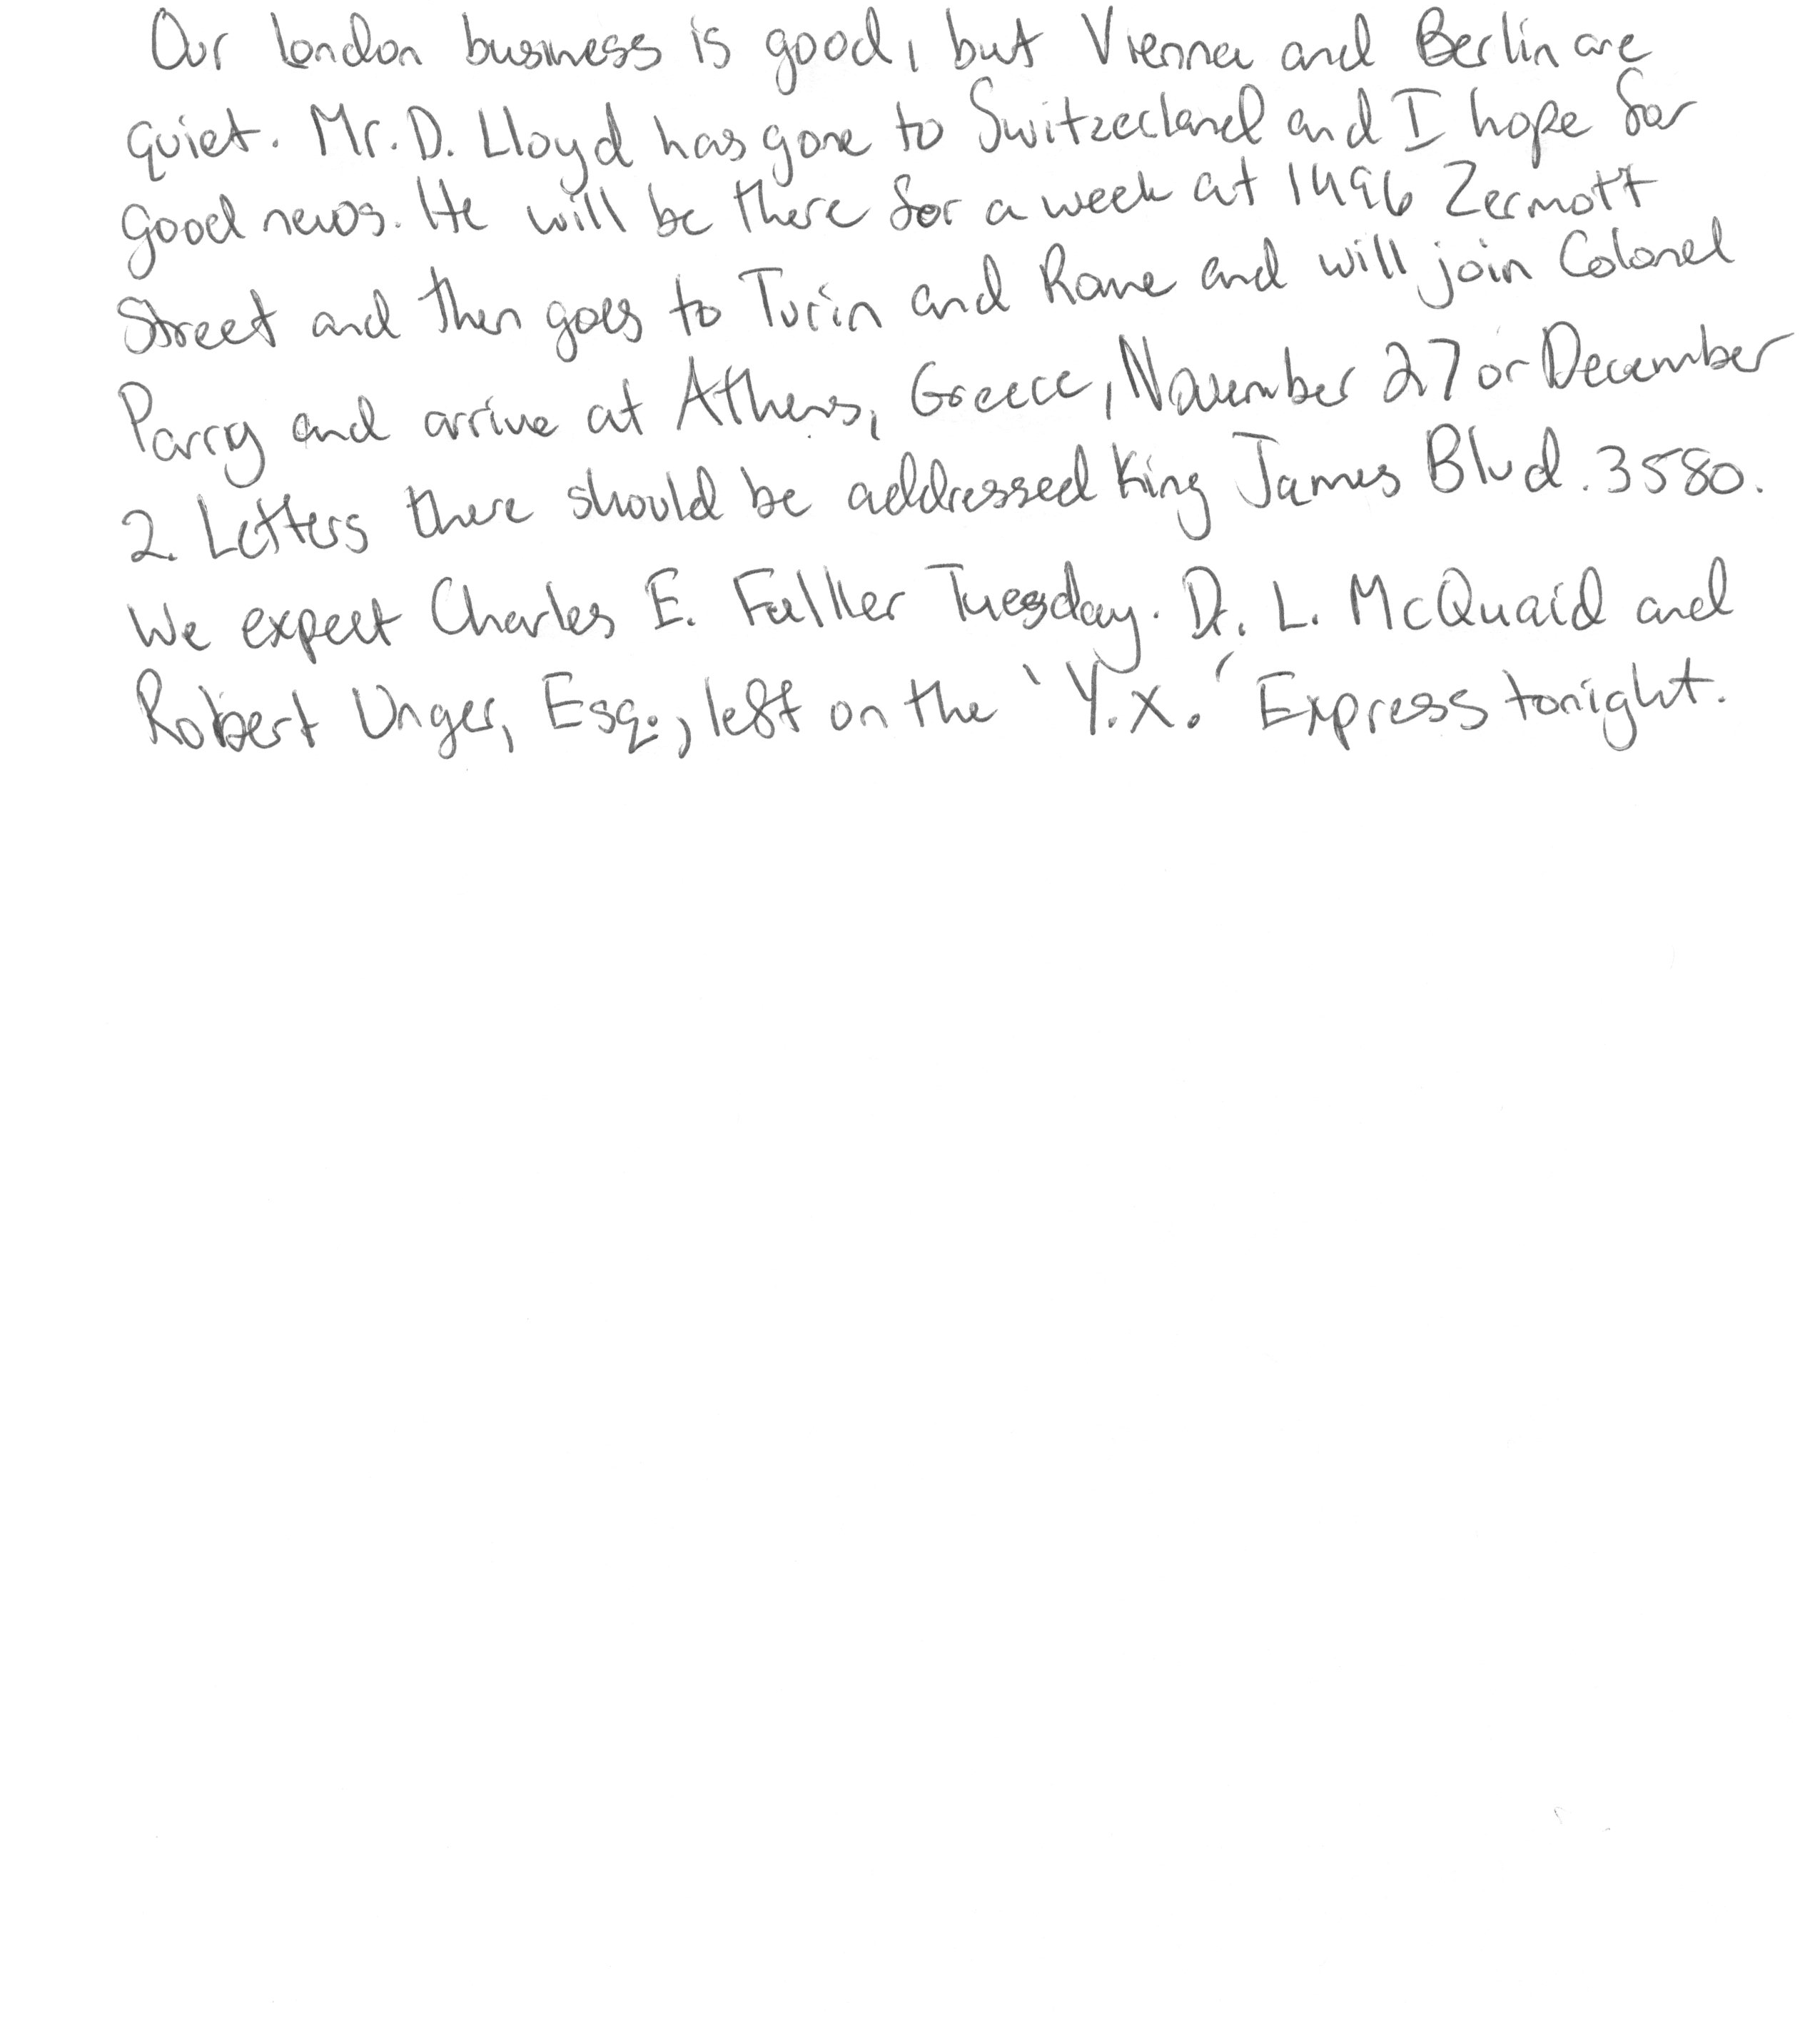 Our London business is good, but Vienna and Berlin are
quiet. Mr. D. Lloyd has gone to Switzerland and I hope for
good news. He will be there for a week at 1496 Zermott
Street and then goes to Turin and Rome and will join Colonel
Parry and arrive at Athens, Greece, November 27 or December
2. Letters there should be addressed King James Blvd. 3580.
We expect Charles E. Fulller Tuesday. Dr. L. McQuaid and
Robert Unger, Esq., left on the 'Y.X.' Express tonight.